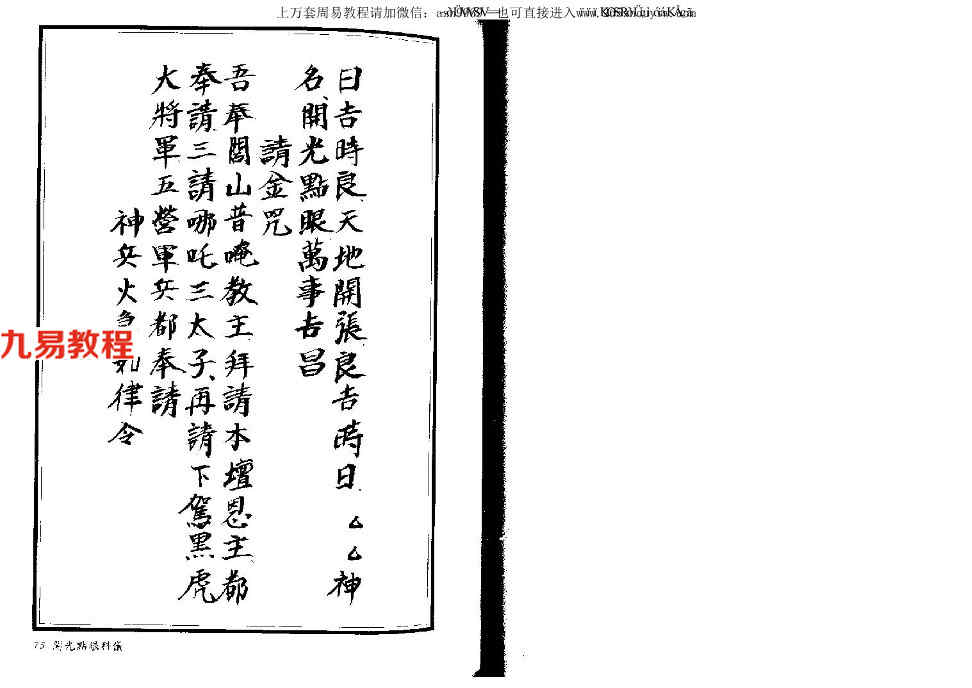 上万套周易教程请加微信：
也可直接进入www.
日吉時良天地開張良吉時日厶厶神
名開光點眼萬事吉昌
請金咒
吾奉閭山普唵教主拜請本壇恩主都
奉請三請哪吒三太子再請下駕黑虎
大將軍五營軍兵都奉請
神兵火急如律令
九易教程
75 開光點眼科儀